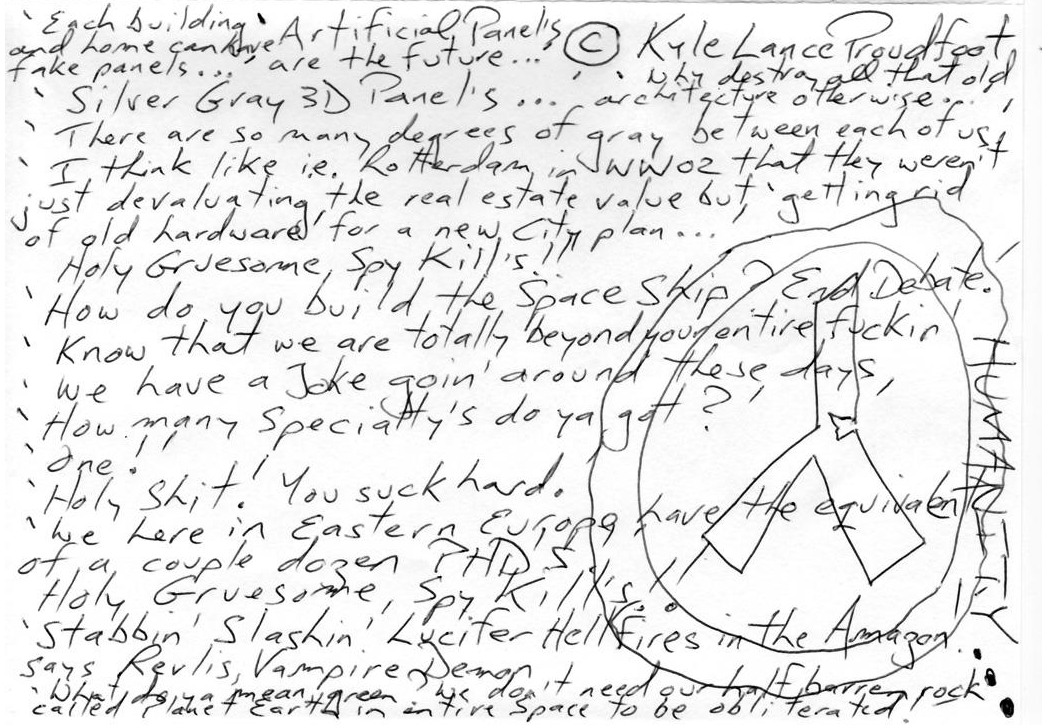 'Each building
and home can have Artificial Panel's © Kyle Lance Proudfoot
fake panels...' are the future...' 'Why destroy all that old
'Silver Gray 3D Panel's... architecture otherwise...'
'There are so many degrees of gray between each of us,
'I think like ie. Rotterdam in WW02 that they weren't
just devaluating the real estate value but, 'getting rid
of old hardware' for a new City plan...
'Holy Gruesome, Spy Kill's!!
'How do you build the Space Ship? End Debate.'
'Know that we are totally beyond your entire fuckin'
'We have a Joke goin' around these days,
'How many Specialty's do ya got?'
'One!'
'Holy Shit! You suck hard.
'We here in Eastern Europe have the equivalent
of a couple dozen PHD's
'Holy Gruesome, Spy Kill's!!
'Stabbin' Slashin' Lucifer Hellfires in the Amazon.
says Revlis, Vampire Demon
'What do ya mean, green? We don't need our half barren rock
called Planet Earth in entire Space to be obliterated!'
HUMANITY